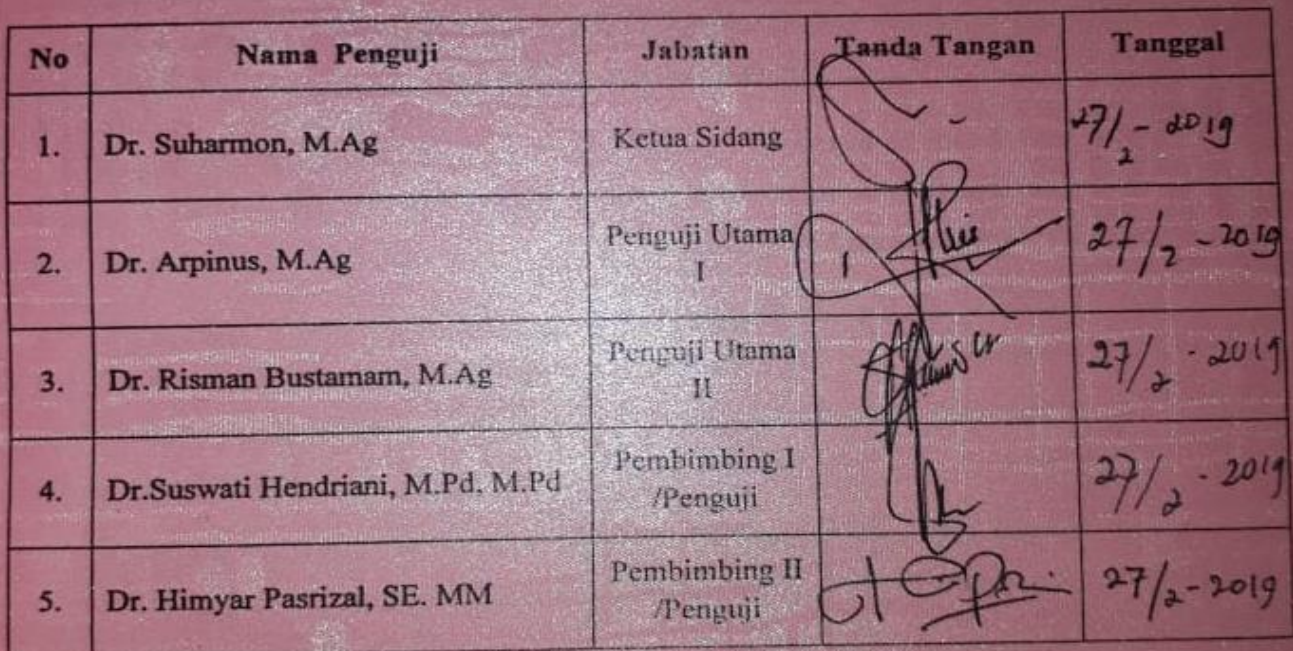 No Nama Penguji Jabatan Tanda Tangan Tanggal
1. Dr. Suharmon, M.Ag Ketua Sidang 27/2 - 2019
2. Dr. Arpinus, M.Ag Penguji Utama I 27/2 - 2019
3. Dr. Risman Bustamam, M.Ag Penguji Utama II 27/2 - 2019
4. Dr.Suswati Hendriani, M.Pd. M.Pd Pembimbing I /Penguji 27/2 - 2019
5. Dr. Himyar Pasrizal, SE. MM Pembimbing II /Penguji 27/2 - 2019